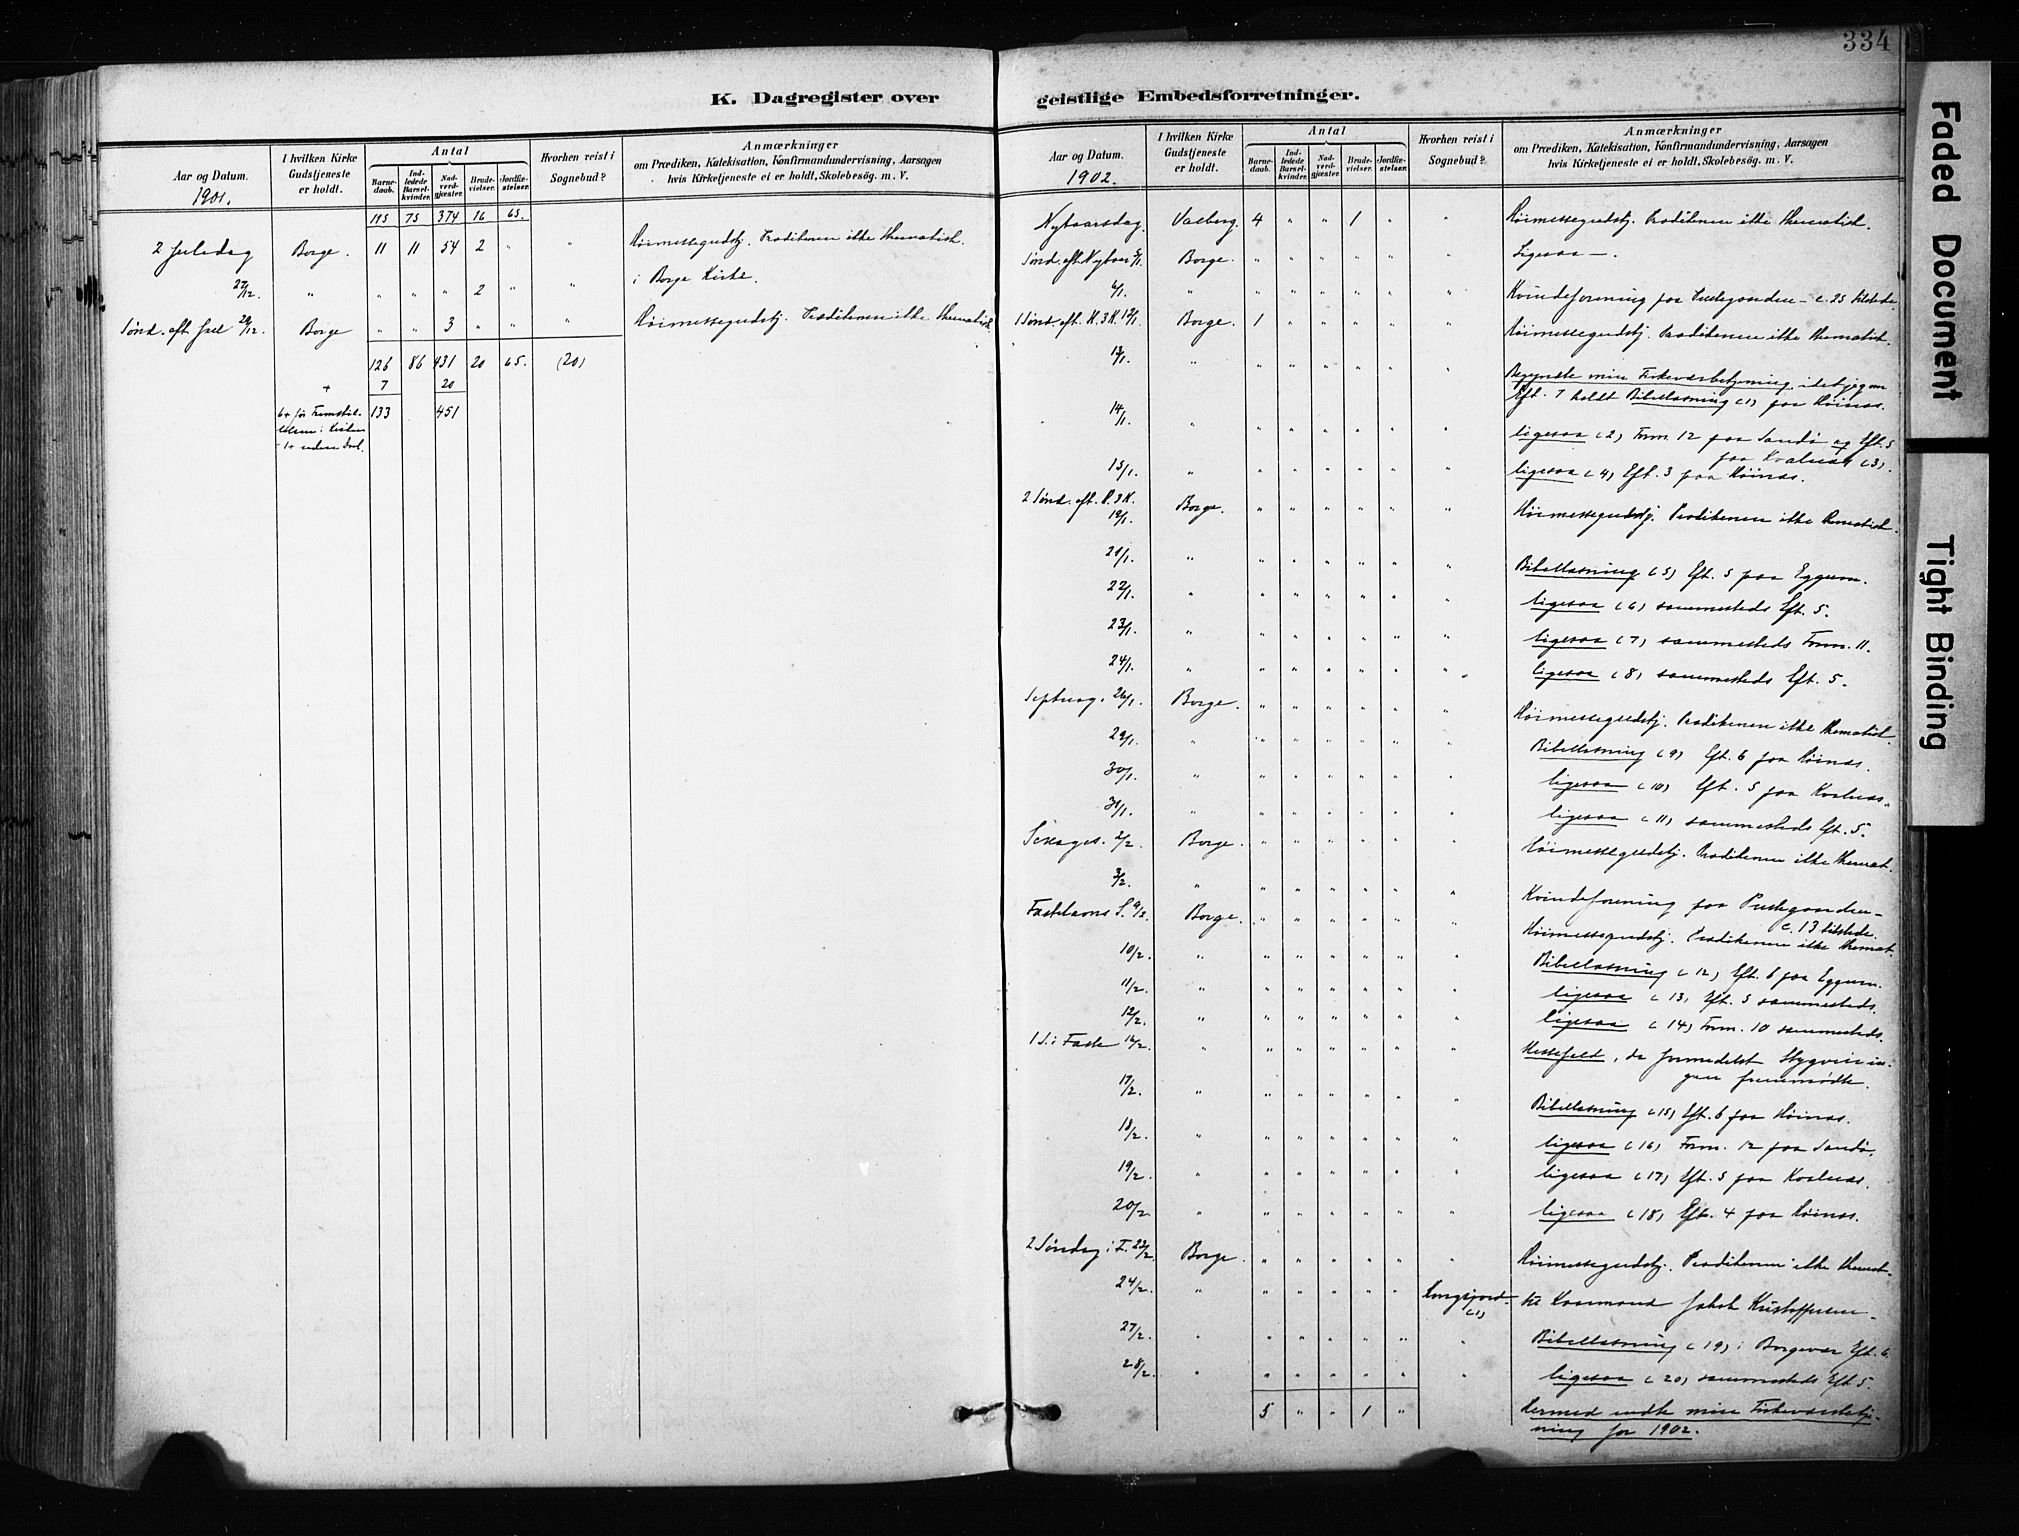 334
Faded Document
Tight Binding
K. Dagregister over
Aar og Datum.
1901.
I hvilken Kirke Gudstjeneste er holdt.
Antal
Barne-daab.
Ind-ledede Barsel-kvinder.
Nad-verd-gjæster.
Brude-vielser.
Jordfæ-stelser.
Hvorhen reist i Sognebud?
Anmærkninger
om Prædiken, Katekisation, Konfirmandundervisning, Aarsagen
hvis Kirketjeneste ei er holdt, Skolebesög. m. V.
115 75 374 16 65.
2 Juledag Borge. 11 11 54 2 " " Høimessegudstj. Prædikenen ikke thematisk.
27/12. " " " " 2 " " i Borge Kirke.
Sønd. eft. Juel 29/12. Borge " " 3 " " " Høimessegudstj. Prædikenen ikke thematisk
126 86 431 20 65. (20)
+ 7 20
133 451
geistlige Embedsforretninger.
Aar og Datum.
1902.
I hvilken Kirke Gudstjeneste er holdt.
Antal
Barne-daab.
Ind-ledede Barsel-kvinder.
Nad-verd-gjæster.
Brude-vielser.
Jordfæ-stelser.
Hvorhen reist i Sognebud?
Anmærkninger
om Prædiken, Katekisation, Konfirmandundervisning, Aarsagen
hvis Kirketjeneste ei er holdt, Skolebesög. m. V.
Nytaarsdag. Valberg. 4 " " 1 " " Høimessegudstj. Prædikenen ikke thematisk.
Sønd. eft. Nytaar 5/1. Borge. " " " " " " Ligesaa —.
6/1. " " " " " " " Kvindeforening paa Præstegaarden — c. 25 tilstede.
1 Sønd. eft. H. 3 K. 12/1. Borge. 1 " " " " " Høimessegudstj. Prædikenen ikke thematisk.
13/1. " " " " " " " Begyndte min Fiskeværsbetjening, idet jeg om
Eft. 7 holdt Bibellæsning (1) paa Høinæs.
14/1. " " " " " " " ligesaa (2) Form. 12 paa Sandø og Eft. 5
paa Kvalnæs (3).
15/1. " " " " " " " ligesaa (4) Eft. 3 paa Høinæs.
2 Sønd. eft. H. 3 K. 19/1. Borge. " " " " " " Høimessegudstj. Prædikenen ikke thematisk.
21/1. " " " " " " " Bibellæsning (5) Eft. 5 paa Eggum.
22/1. " " " " " " " ligesaa (6) sammesteds Eft. 5.
23/1. " " " " " " " ligesaa (7) sammesteds Form. 11.
24/1. " " " " " " " ligesaa (8) sammesteds Eft. 5.
Septuag. 26/1. Borge. " " " " " " Høimessegudstj. Prædikenen ikke thematisk.
29/1. " " " " " " " Bibellæsning (9) Eft. 6 paa Høinæs.
30/1. " " " " " " " ligesaa (10) Eft. 5 paa Kvalnæs.
31/1. " " " " " " " ligesaa (11) sammesteds Eft. 5.
Sexages. 2/2. Borge. " " " " " " Høimessegudstj. Prædikenen ikke themat.
3/2. " " " " " " " Kvindeforening paa Præstegaarden —
c. 13 tilstede.
Fastelavns S. 9/2. Borge. " " " " " " Høimessegudstj. Prædikenen ikke themat.
10/2. " " " " " " " Bibellæsning (12) Eft. 6 paa Eggum.
11/2. " " " " " " " ligesaa (13) Eft. 5 sammesteds.
12/2. " " " " " " " ligesaa (14) Form. 10 sammesteds.
1 S. i Faste 16/2. " " " " " " " Messefald, da formedelst Stygveir in-
gen fremmødte.
17/2. " " " " " " " Bibellæsning (15) Eft. 6 paa Høinæs.
18/2. " " " " " " " ligesaa (16) Form. 12 paa Sandø.
19/2. " " " " " " " ligesaa (17) Eft. 5 paa Kvalnæs.
20/2. " " " " " " " ligesaa (18) Eft. 4 paa Høinæs.
2 Søndag i F. 23/2. Borge. " " " " " " Høimessegudstj. Prædikenen ikke themat.
24/2. " " " " " " (1) til Jakob Kristoffersen —
27/2. " " " " " " " Bibellæsning (19) i Borgevær Eft. 6.
28/2. " " " " " " " ligesaa (20) sammesteds Eft. 5.
5 " " 1 " Hermed endte min Fiskeværsbetje-
ning for 1902.